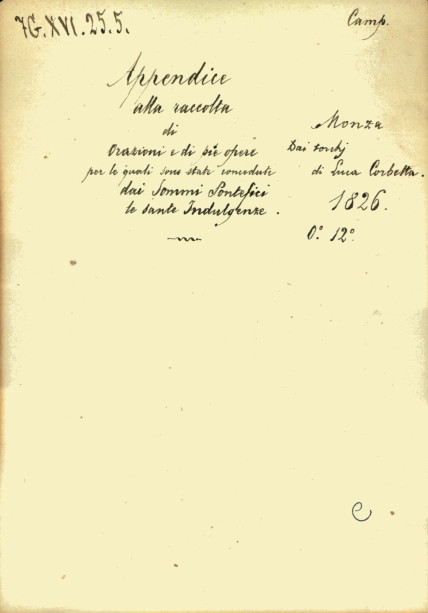 7G.XVI.25.5.
Camp.
Appendice
alla raccolta
di
Orazioni e di pie opere
per le quali sono state concedute
dai Sommi Pontefici
le sante Indulgenze.
Monza
Dai torchj
di Luca Corbetta.
1826.
0.° 12.°
e